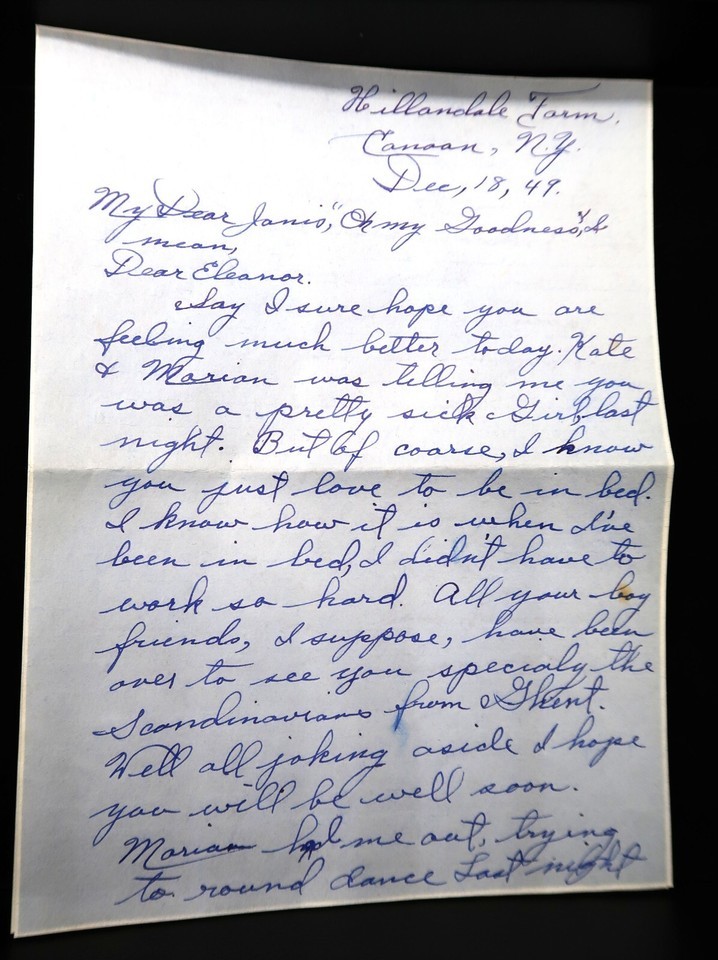 Hillandale Farm.
Canaan, N.Y.
Dec, 18, 49.
My Dear Janis", "Oh my Goodness", I
mean,
Dear Eleanor.
Say I sure hope you are
feeling much better today. Kate
& Marian was telling me you
was a pretty sick Girl, last
night. But of coarse, I know
you just love to be in bed.
I know how it is when I've
been in bed, I didn't have to
work so hard. All your boy
friends, I suppose, have been
over to see you specialy the
Scandinavians from Ghent.
Well all joking aside I hope
you will be well soon.
Marian me out, trying
to round dance Last night